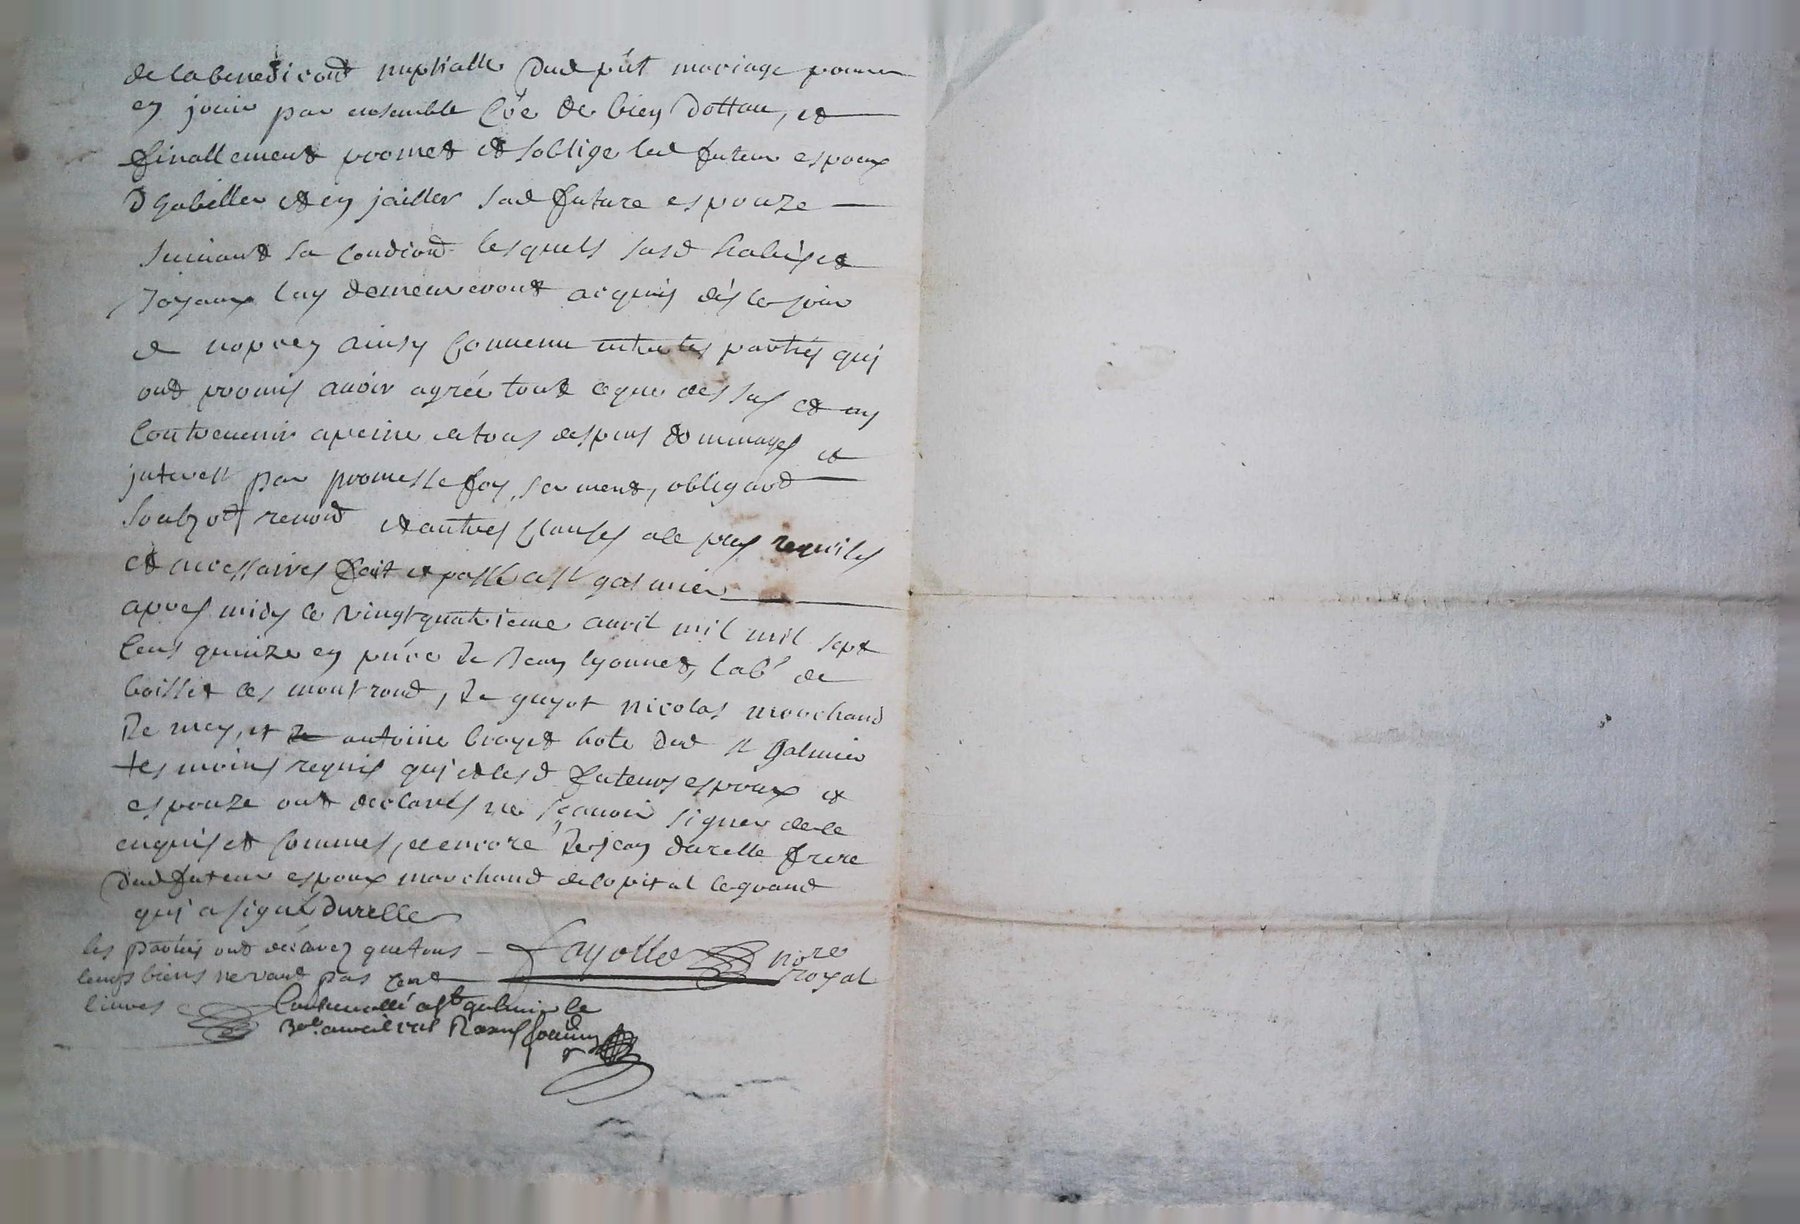 de la benediĉond nuptialle dud pñt mariage pour
en jouir par ensemble côe de bien dottau, et
finallement promet et soblige led futeur espoux
dhabiller et en jailler sad future espouze
suivant sa condiond lesquels susd habis et
Joyaux luy demeureront acquis dés le jour
de nopces ainsy convenu entre les parties qui
ont promis avoir agréé tout ce que dessus et ny
contrevenir a peine de tous despens dommages et
interest par promesse foy, serment, obligaôd
renoñd et autres clauses ale pñs requises
et necessaires fait et passé a St galmier
apres midy le vingt quatrieme avril mil mil sept
cens quinze en pñce de Jean lyonnet, labr de
boisset les montrond, Sr guyot nicolas marchand
de mey, et Sr antoine broyet hote dud St Galmier
tesmoins requis qui et lesd futeurs espoux et
espouze ont declarés ne sçavoir signer de ce
enquis et sommes, et encore Sr jean durelle frere
dud futeur espoux marchand de lopital le grand
qui a signé Durelle
les parties ont declarez que tous
leurs biens ne vault pas cent
livres
Fayolle nore
royal
Controollé a St galmier le
30e avril 1715 Receu